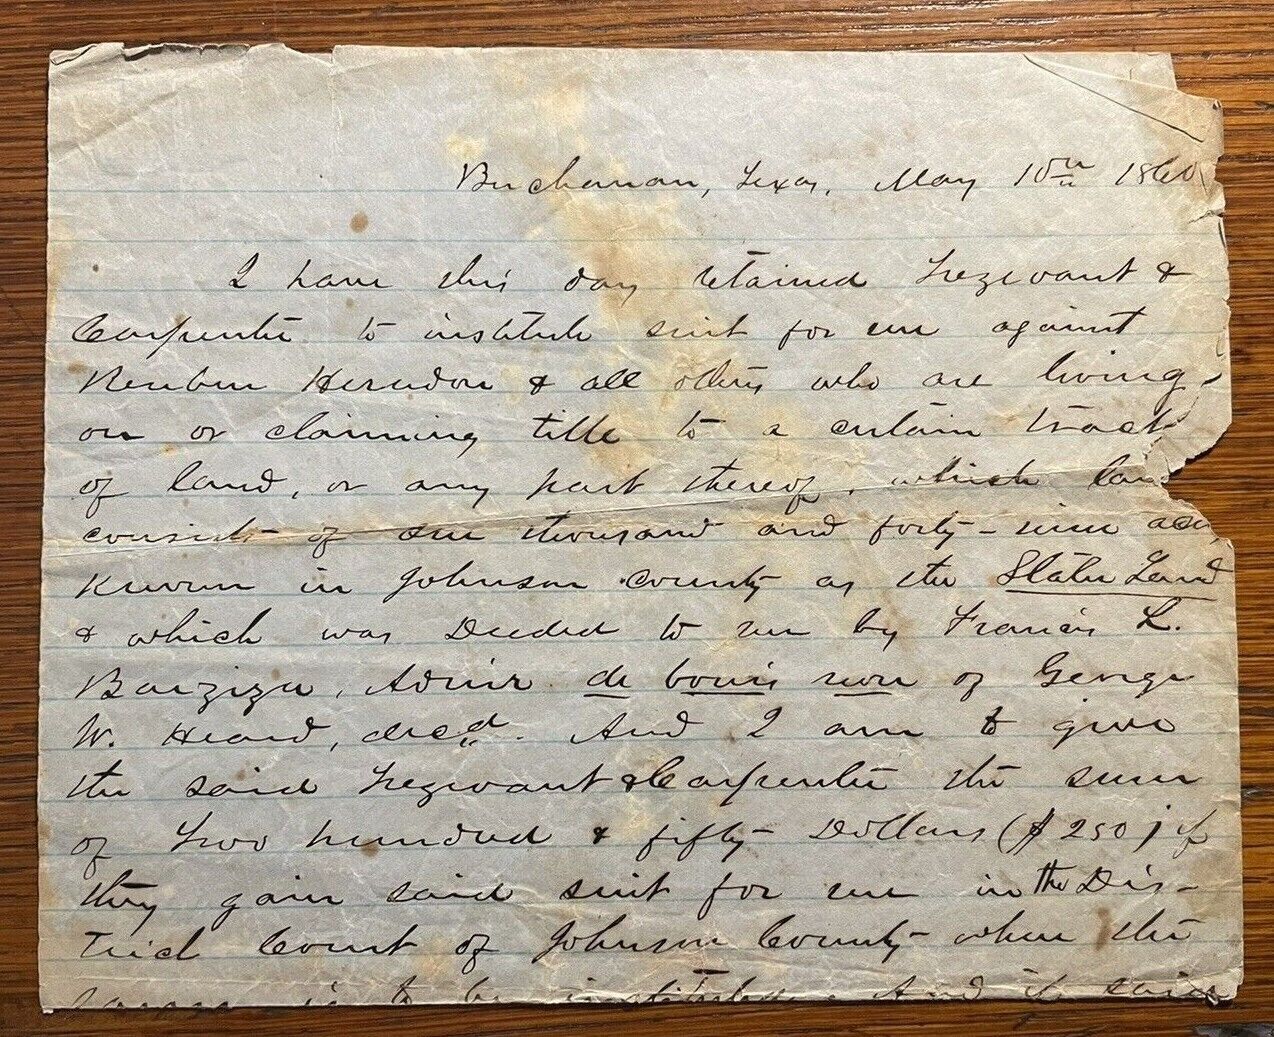 Buchanan, Texas. May 10th 1860
I have this day retained Trezevant &
Carpenter to institute suit for me against
Reuben Herndon & all others who are living
on or claiming title to a certain tract
of land, or any part thereof, which land
consists of one thousand and forty-nine acres
known in Johnson County as the Slater Land
& which was Deeded to me by Francis L.
Barziza, Admr. de bonis non of George
W. Heard, decd. And I am to give
the said Trezevant & Carpenter the sum
of Two hundred & fifty Dollars ($250) if
they gain said suit for me in the Dis-
trict Court of Johnson County where the
same is to be instituted. And if said